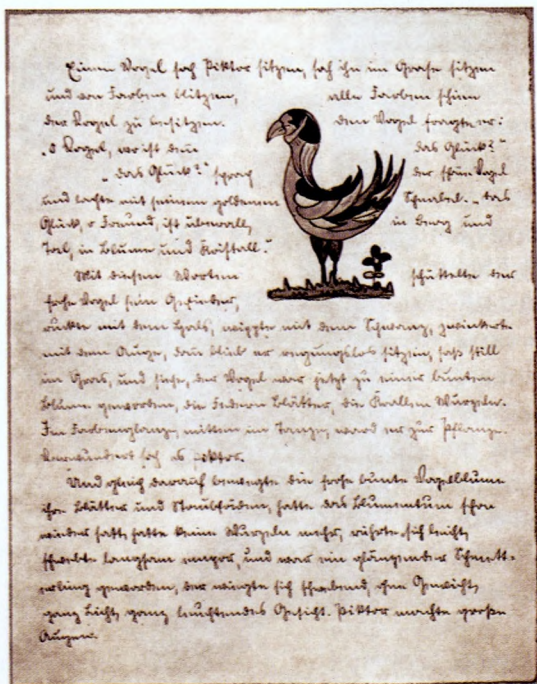 Einen Vogel sah Piktor sitzen, sah ihn im Grase sitzen
und von Farben blitzen, alle Farben schien
der Vogel zu besitzen. Den Vogel fragte er:
„O Vogel, wo ist denn das Glück?“
„Das Glück?“ sprach der schöne Vogel
und lachte mit seinem goldenen Schnabel. „Das
Glück, o Freund, ist überall, in Berg und
Tal, in Blume und Kristall.“
Mit diesen Worten schüttelte der
frohe Vogel sein Gefieder,
ruckte mit dem Hals, wippte mit dem Schwanz, zwinkerte
mit dem Auge, dann blieb er regungslos sitzen, saß still
im Gras, und siehe, der Vogel war jetzt zu einer bunten
Blume geworden, die Federn Blätter, die Krallen Wurzeln.
Im Farbenglanz, mitten im Tanze, ward er zur Pflanze.
Verwundert sah es Piktor.
Und gleich darauf bewegte die frohe bunte Vogelblume
ihre Blätter und Staubfäden, hatte das Blumentum schon
wieder satt, hatte keine Wurzeln mehr, rührte sich leicht,
schwebte langsam empor, und war ein glänzender Schmett-
erling geworden, der wiegte sich schwebend, ohne Gewicht,
ganz Licht, ganz leuchtendes Gesicht. Piktor machte große
Augen.